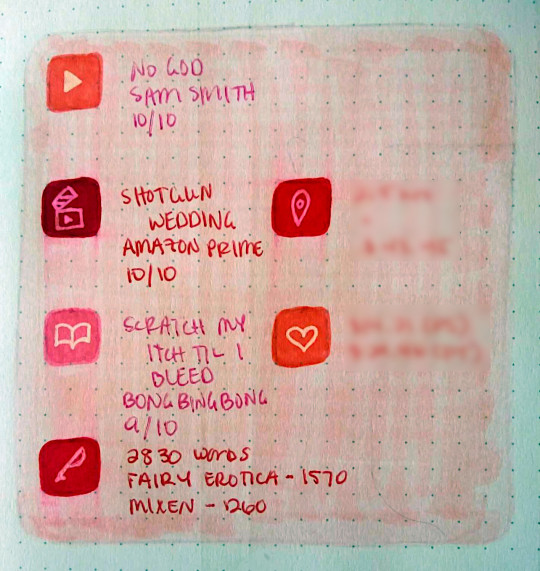 NO GOD
SAM SMITH
10/10
SHOTGUN
WEDDING
AMAZON PRIME
10/10
SCRATCH MY
ITCH TIL I
BLEED
BONGBINGBONG
9/10
2830 WORDS
FAIRY EROTICA - 1570
MIXEN - 1260